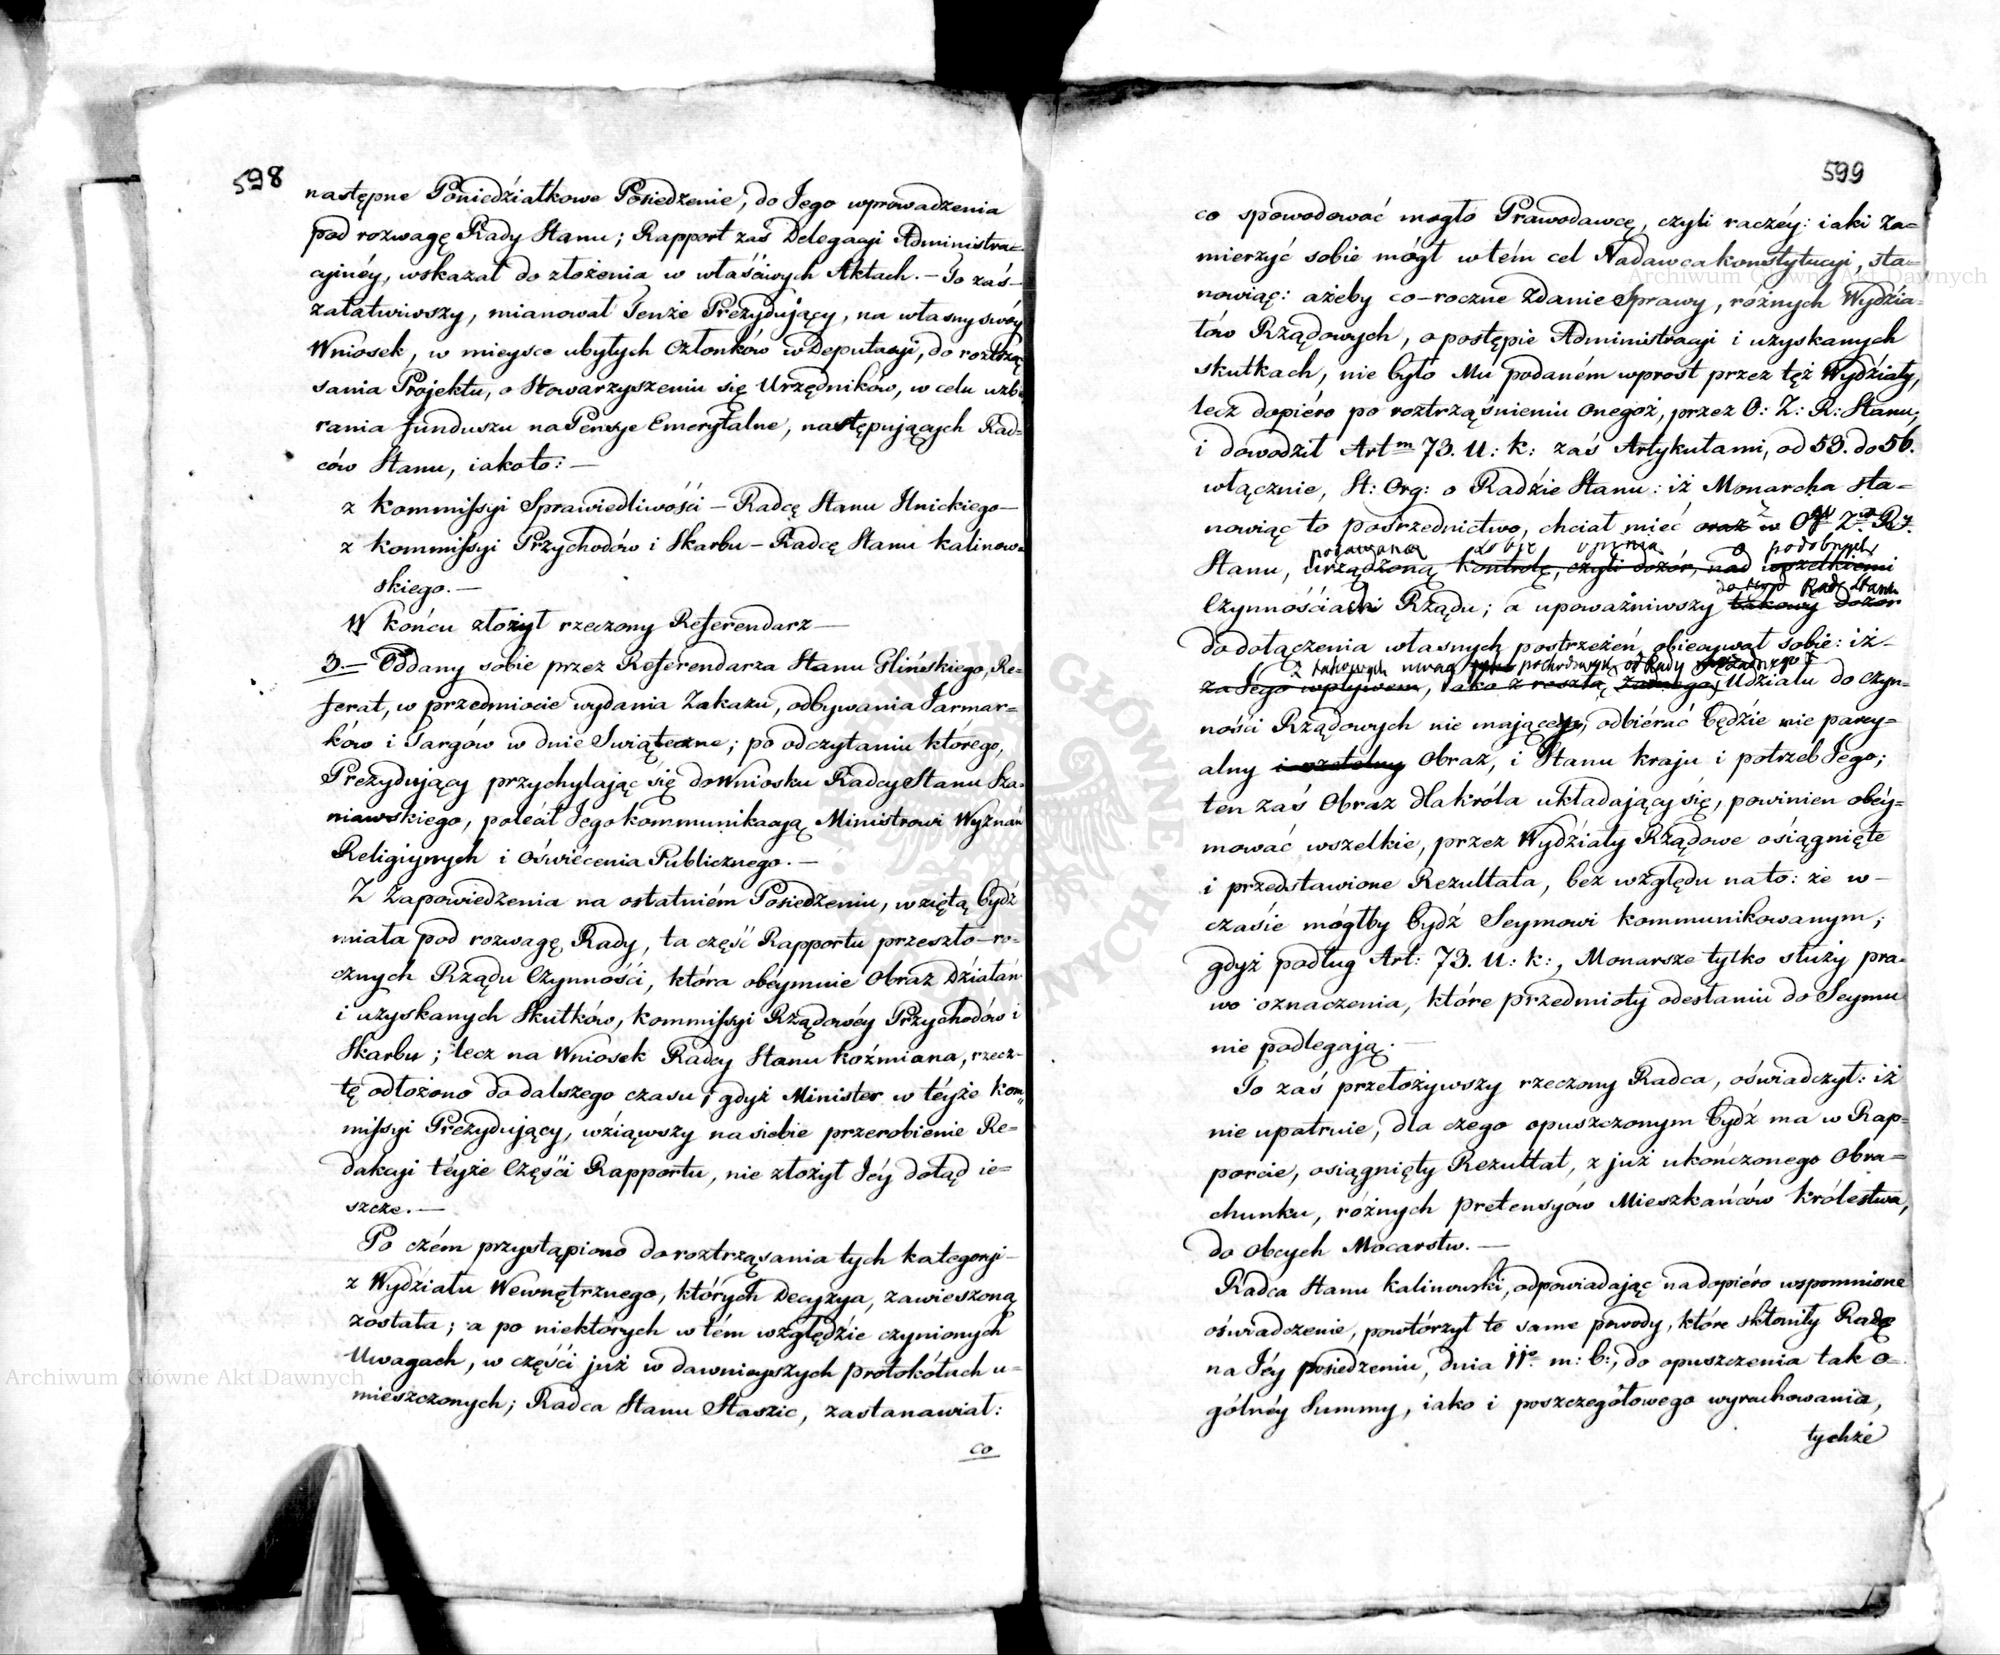 598
następne Poniedziałkowe Posiedzenie, do Jego wprowadzenia
pod rozwagę Rady Stanu; Rapport zaś Delegacyi Administra=
cyinéy, wskazał do złożenia w właściwych Aktach. – To zaś –
załatwiwszy, mianował Tenże Prezydujący, na własny swóy
Wniosek, w mieysce ubyłych Członków w Deputacyi, do roztrzą
sania Projektu, o Stowarzyszeniu się Urzędników, w celu uzbi
rania funduszu na Pensye Emerytalne, następujących Rad=
ców Stanu, iako to: –
z Kommissyi Sprawiedliwości – Radcę Stanu Ilnickiego –
z Kommissyi Przychodów i Skarbu – Radcę Stanu Kalinow=
skiego. –
W końcu złożył rzeczony Referendarz –
3. – Oddany sobie przez Referendarza Stanu Glińskiego, Re=
ferat, w przedmiocie wydania Zakazu, odbywania Jarmar=
ków i Targów w dnie Swiąteczne; po odczytaniu którego,
Prezydujący przychylając się do Wniosku Radcy Stanu Sza=
niawskiego, polecił Jego kommunikacyą Ministrowi Wyznań
Religiynych i Oświécenia Publicznego. –
Z Zapowiedzenia na ostatniém Posiedzeniu, wziętą bydź
miała pod rozwagę Rady, ta część Rapportu przeszło-ro=
cznych Rządu Czynności, która obéymuie Obraz Działań
i uzyskanych Skutków, Kommissyi Rządowéy Przychodów i
Skarbu; lecz na Wniosek Radcy Stanu Koźmiana, rzecz=
tę odłożono do dalszego czasu, gdyż Minister w téyże Kom„
missyi Prezydujący, wziąwszy na siebie przerobienie Re=
dakcyi téyże Części Rapportu, nie złożył Jéy dotąd ie=
szcze. –
Po czém przystąpiono do roztrząsania tych kategoryi –
z Wydziału Wewnętrznego, których Decyzya, zawieszoną
została; a po niektórych w tém względzie czynionych
Uwagach, w części już w dawnieyszych protokółach u=
mieszczonych; Radca Stanu Staszic, zastanawiał:
co
599
co spowodować mogło Prawodawcę, czyli raczéy: iaki za=
mierzyć sobie mógł w tém cel Nadawca Konstytucyi, sta=
nowiąc: ażeby co-roczne Zdanie Sprawy, różnych Wydzia=
łów Rządowych, o postępie Administracyi i uzyskanych
skutkach, nie było Mu podaném wprost przez też Wydziały,
lecz dopiéro po roztrząśnieniu onegoż, przez O: Z: R: Stanu,
i dowodził Art<sup>m</sup> 73. U: K: zaś Artykułami, od 53. do 56.
włącznie, St: Org: o Radzie Stanu: iż Monarcha sta=
nowiąc to pośrednictwo, chciał mieć oraz w O Z R
podawaną sobie opinią o podobnych
Stanu, urządzoną kontrolę, czyli dozór, nad wszelkiemi
Rad Stanu
Czynnościami Rządu; a upoważniwszy takowy dozór
do dołączenia własnych postrzeżeń, obiecywał sobie: iż –
z takowych uwag pochodzących od Rady żadnego
za Jego wpływem, iako z resztą żadnego Udziału do czyn=
ności Rządowych nie mającéy, odbiérać będzie nie parcy=
alny i rzetelny Obraz, i Stanu kraju i potrzeb Jego;
ten zaś Obraz dla króla układający się, powinien obéy=
mować wszelkie, przez Wydziały Rządowe osiągnięte
i przedstawione Rezultata, bez względu na to: że w –
czasie mógłby bydź Seymowi kommunikowanym;
gdyż podług Art: 73. U: K:, Monarsze tylko służy pra=
wo oznaczenia, które przedmioty odesłaniu do Seymu
nie podlegają. –
To zaś przełożywszy rzeczony Radca, oświadczył: iż
nie upatruie, dla czego opuszczonym bydź ma w Rap=
porcie, osiągnięty Rezultat, z już ukończonego Obra=
chunku, różnych pretensyów Mieszkańców Królestwa,
do Obcych Mocarstw. –
Radca Stanu Kalinowski, odpowiadając na dopiéro wspomnione
oświadczenie, powtórzył te same powody, które skłoniły Radę
na Jéy posiedzeniu, dnia 11<sup>o</sup> m: b:, do opuszczenia tak o=
gólnéy Summy, iako i poszczegółowego wyrachowania,
tychże
Archiwum Główne Akt Dawnych
Archiwum Główne Akt Dawnych